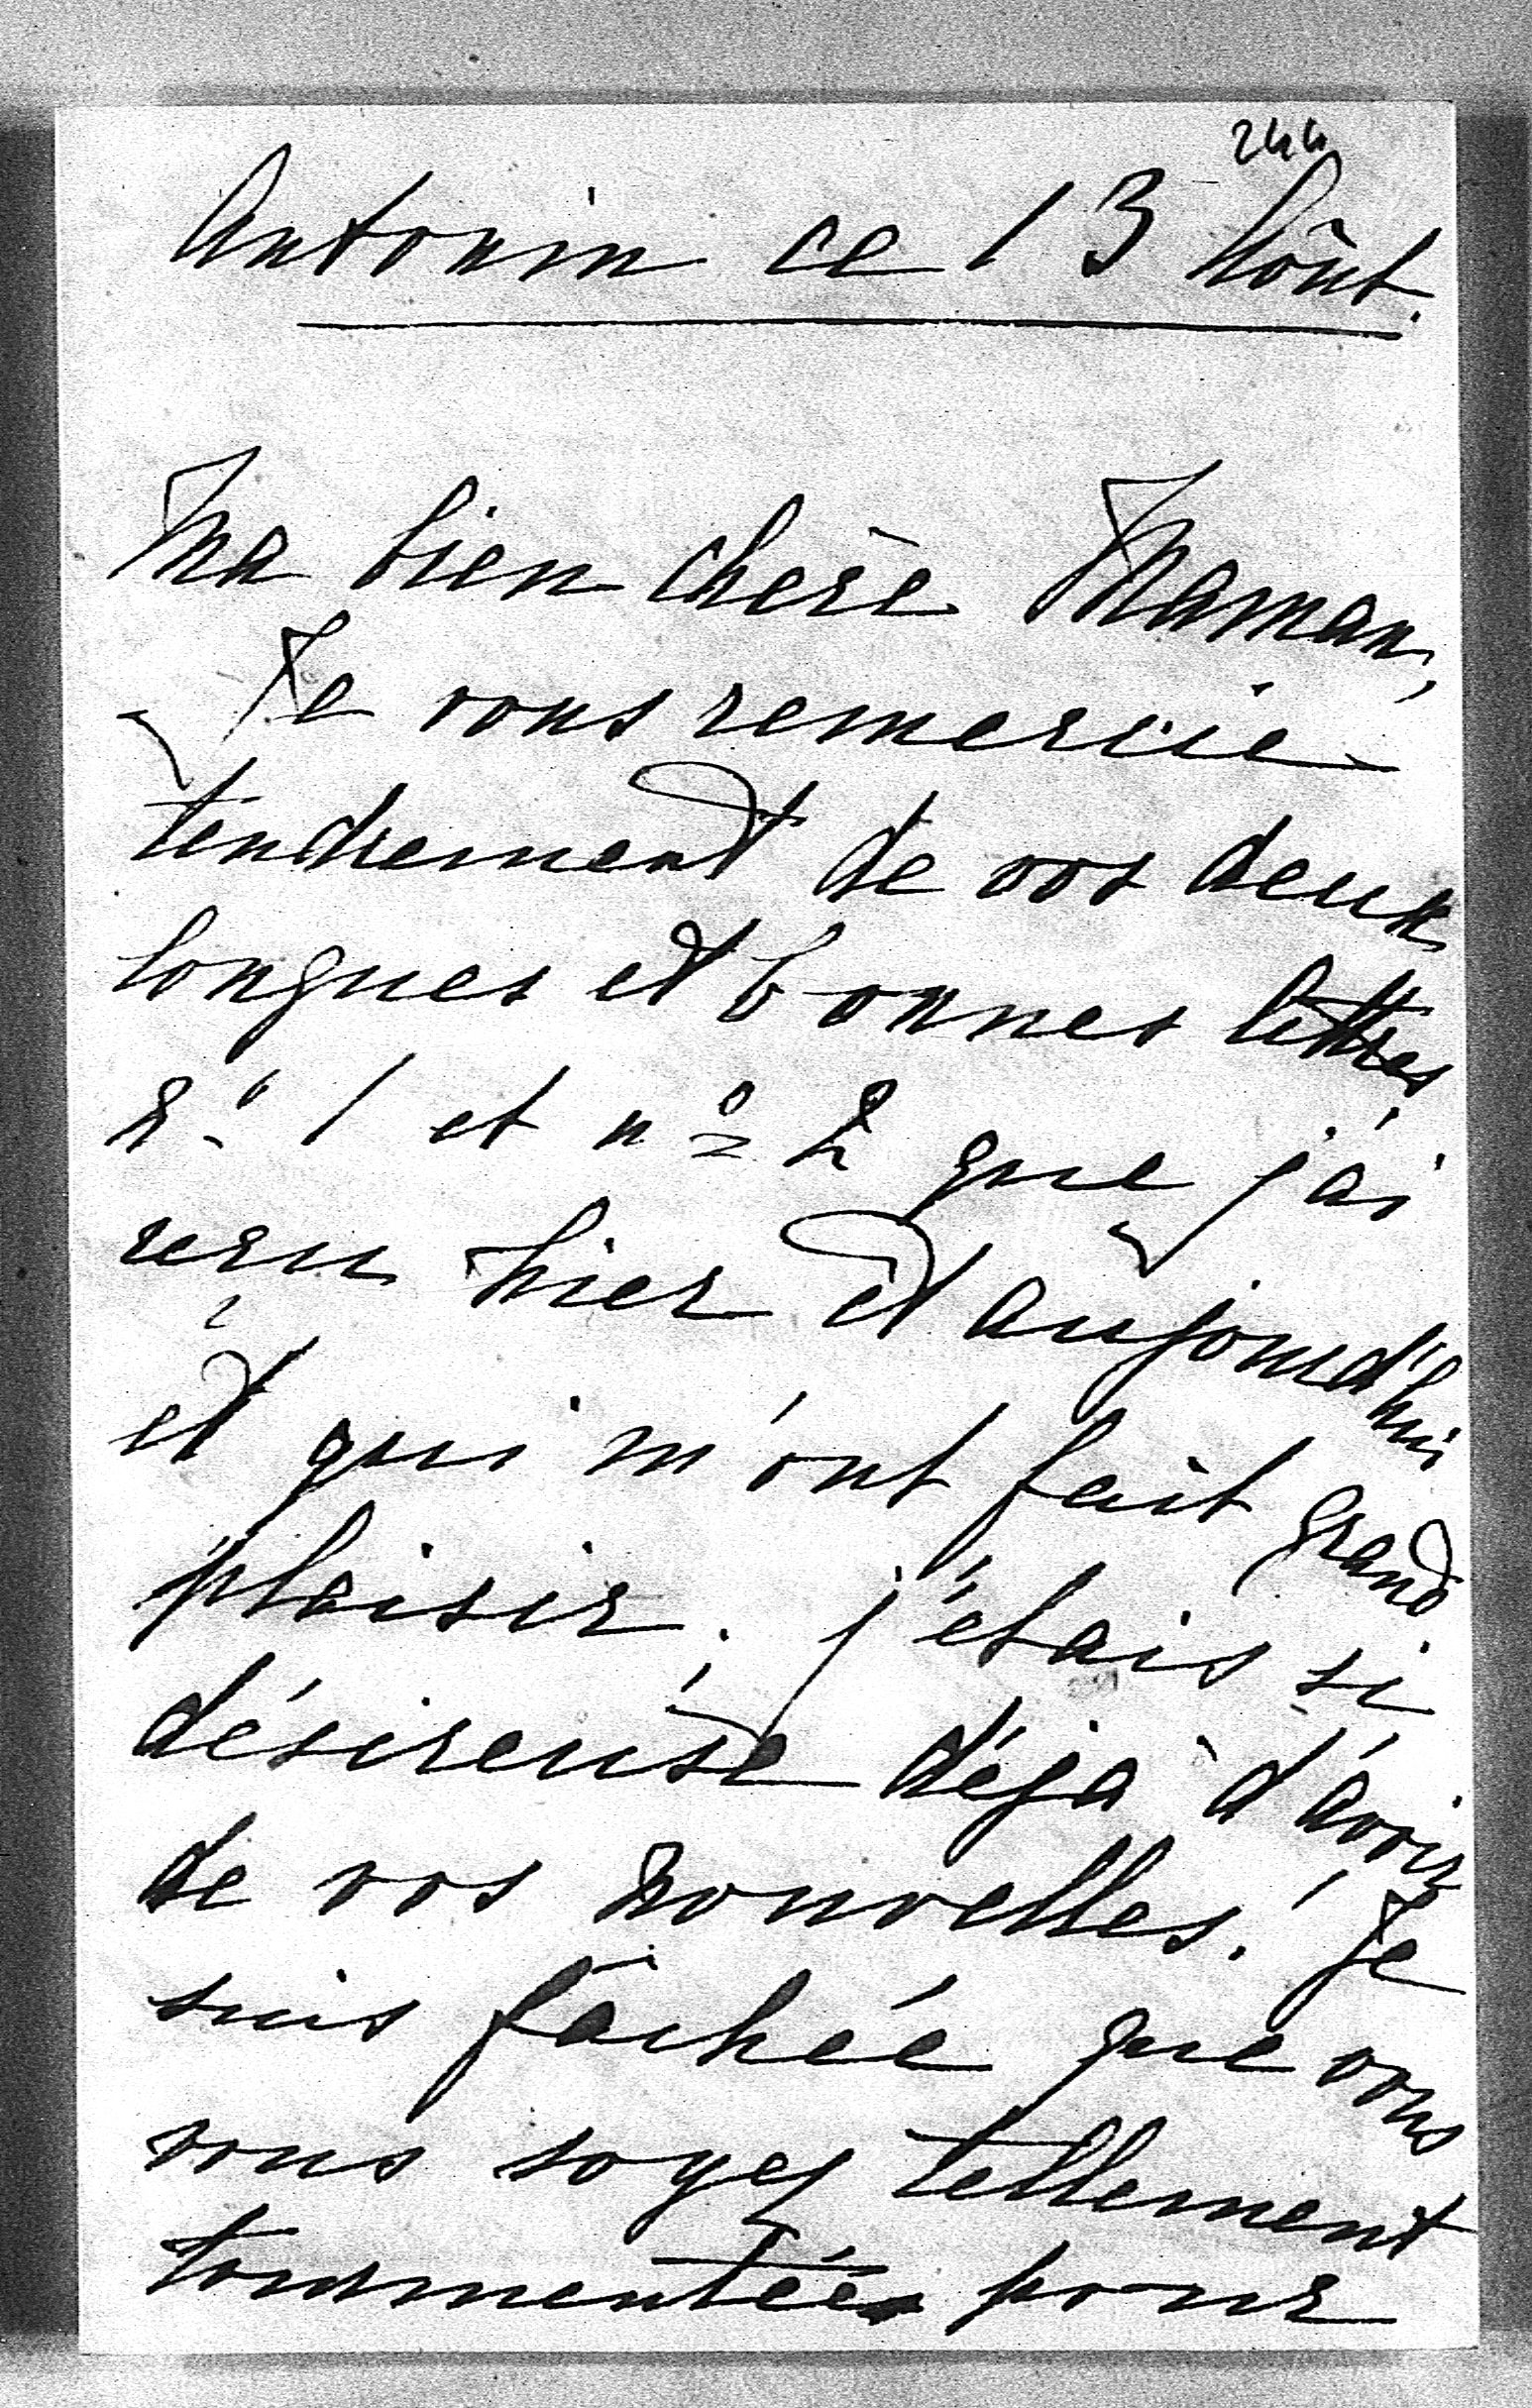 244
Antonin ce 13 Août.
Ma bien chère Maman,
Je vous remercie
tendrement de vos deux
longues et bonnes lettres
nº 1 et nº 2 que j'ai
reçu hier et aujourd'hui
et qui m'ont fait grand
plaisir. j'étais si
désireuse déjà d'avoir
de vos nouvelles! Je
suis fâchée que vous
vous soyez tellement
tourmentée pour